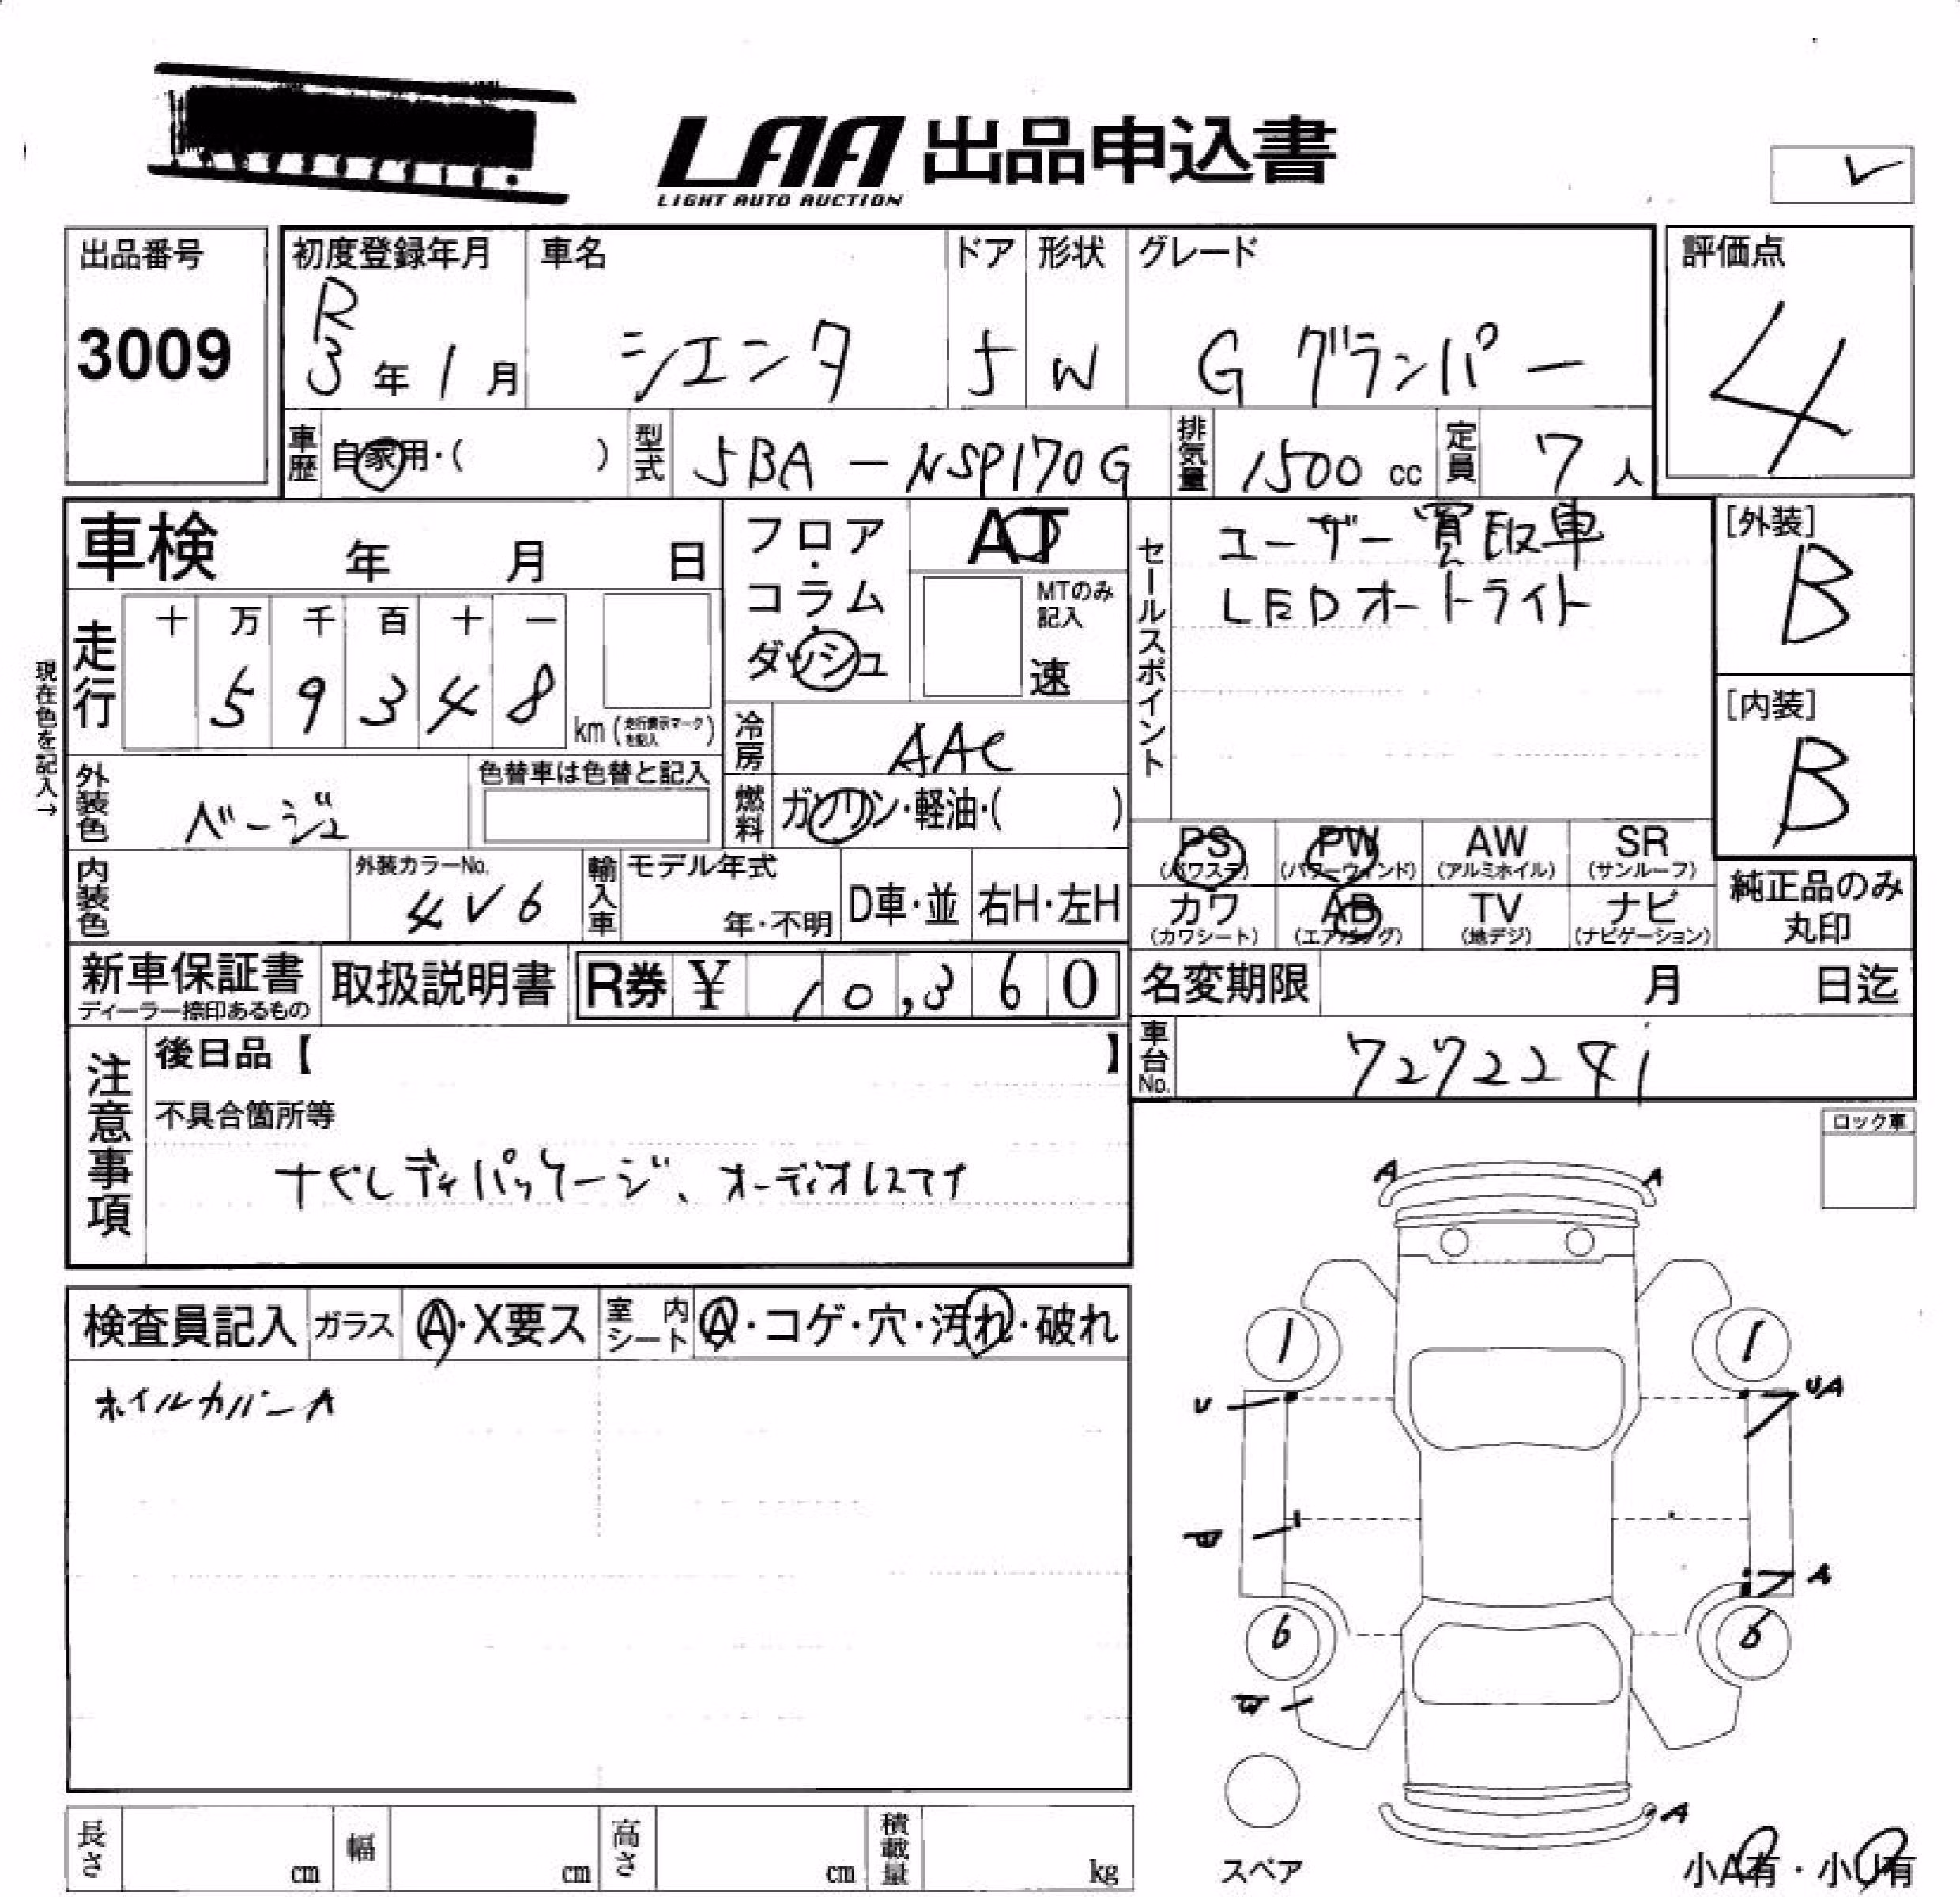 LAA 出品申込書
LIGHT AUTO AUCTION
出品番号
3009
初度登録年月
R
3 年 1 月
車名
シエンタ
ドア
5
形状
W
グレード
G グランパー
評価点
4
車歴
自家用・( )
型式
5BA-NSP170G
排気量
1500 cc
定員
7 人
車検 年 月 日
フロア・コラム・ダッシュ
AT
MTのみ記入
速
セールスポイント
ユーザー買取車
LEDオートライト
[外装]
B
[内装]
B
現在色を記入→
走行
十 万 千 百 十 一
5 9 3 4 8
km (走行表示マークを記入)
冷房
AAC
外装色
ベージュ
色替車は色替と記入
燃料
ガソリン・軽油・( )
PS (パワステ)
PW (パワーウィンド)
AW (アルミホイル)
SR (サンルーフ)
カワ (カワシート)
AB (エアバッグ)
TV (地デジ)
ナビ (ナビゲーション)
純正品のみ丸印
内装色
外装カラーNo.
4V6
輸入車
モデル年式
年・不明
D車・並
右H・左H
新車保証書
ディーラー捺印あるもの
取扱説明書
R券 ¥ 10,360
名変期限 月 日迄
車台No.
7272291
注意事項
後日品【 】
不具合箇所等
ナビレディパッケージ、オーディオレスマイ
ロック車
検査員記入
ガラス
A・X要ス
室内シート
A・コゲ・穴・汚れ・破れ
ホイルカバーA
A A
1 1
U UA
A
6 6
A
スペア
小A有・小U有
長さ cm
幅 cm
高さ cm
積載量 kg